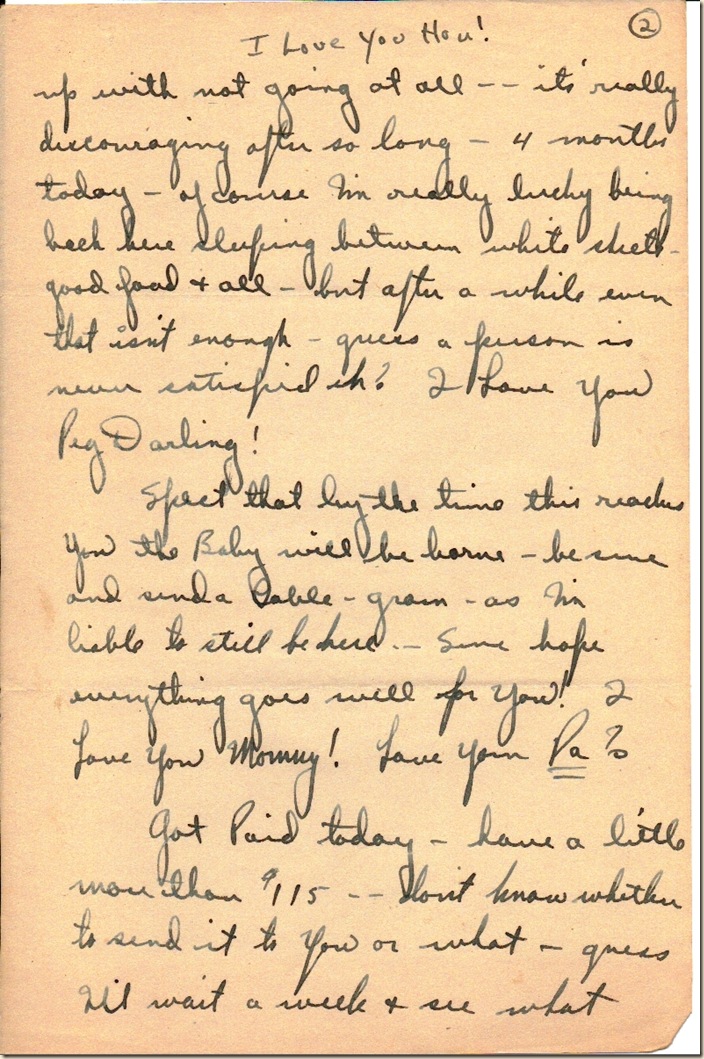 ②
I Love You Hon!
up with not going at all -- its really
discouraging after so long - 4 months
today - of course I'm really lucky being
back here sleeping between white sheets -
good food & all - but after a while even
that isn't enough - guess a person is
never satisfied eh? I Love You
Peg Darling!
Spect that by the time this reaches
You the Baby will be borne - be sure
and send a Cable-gram - as I'm
liable to still be here. - Sure hope
everything goes well for You! I
Love You Mommy! Love Your Pa?
Got Paid today - have a little
more than $115 -- don't know whether
to send it to You or what - guess
I'll wait a week & see what